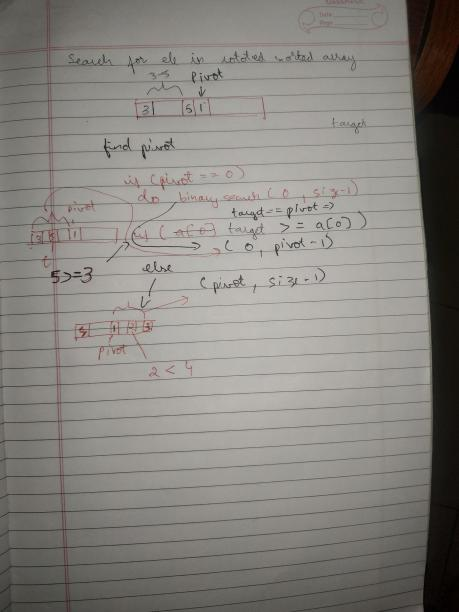 Date
Page
Search for ele in rotated sorted array
3-5 Pivot
3 5 1
target
find pivot
if (pivot == 0)
do binary search (0, size-1)
pivot
target == pivot =>
3 5 1
if (a[0] target >= a[0])
(0, pivot-1)
5>=3
else
(pivot, size-1)
1 2 3
Pivot
2 < 4